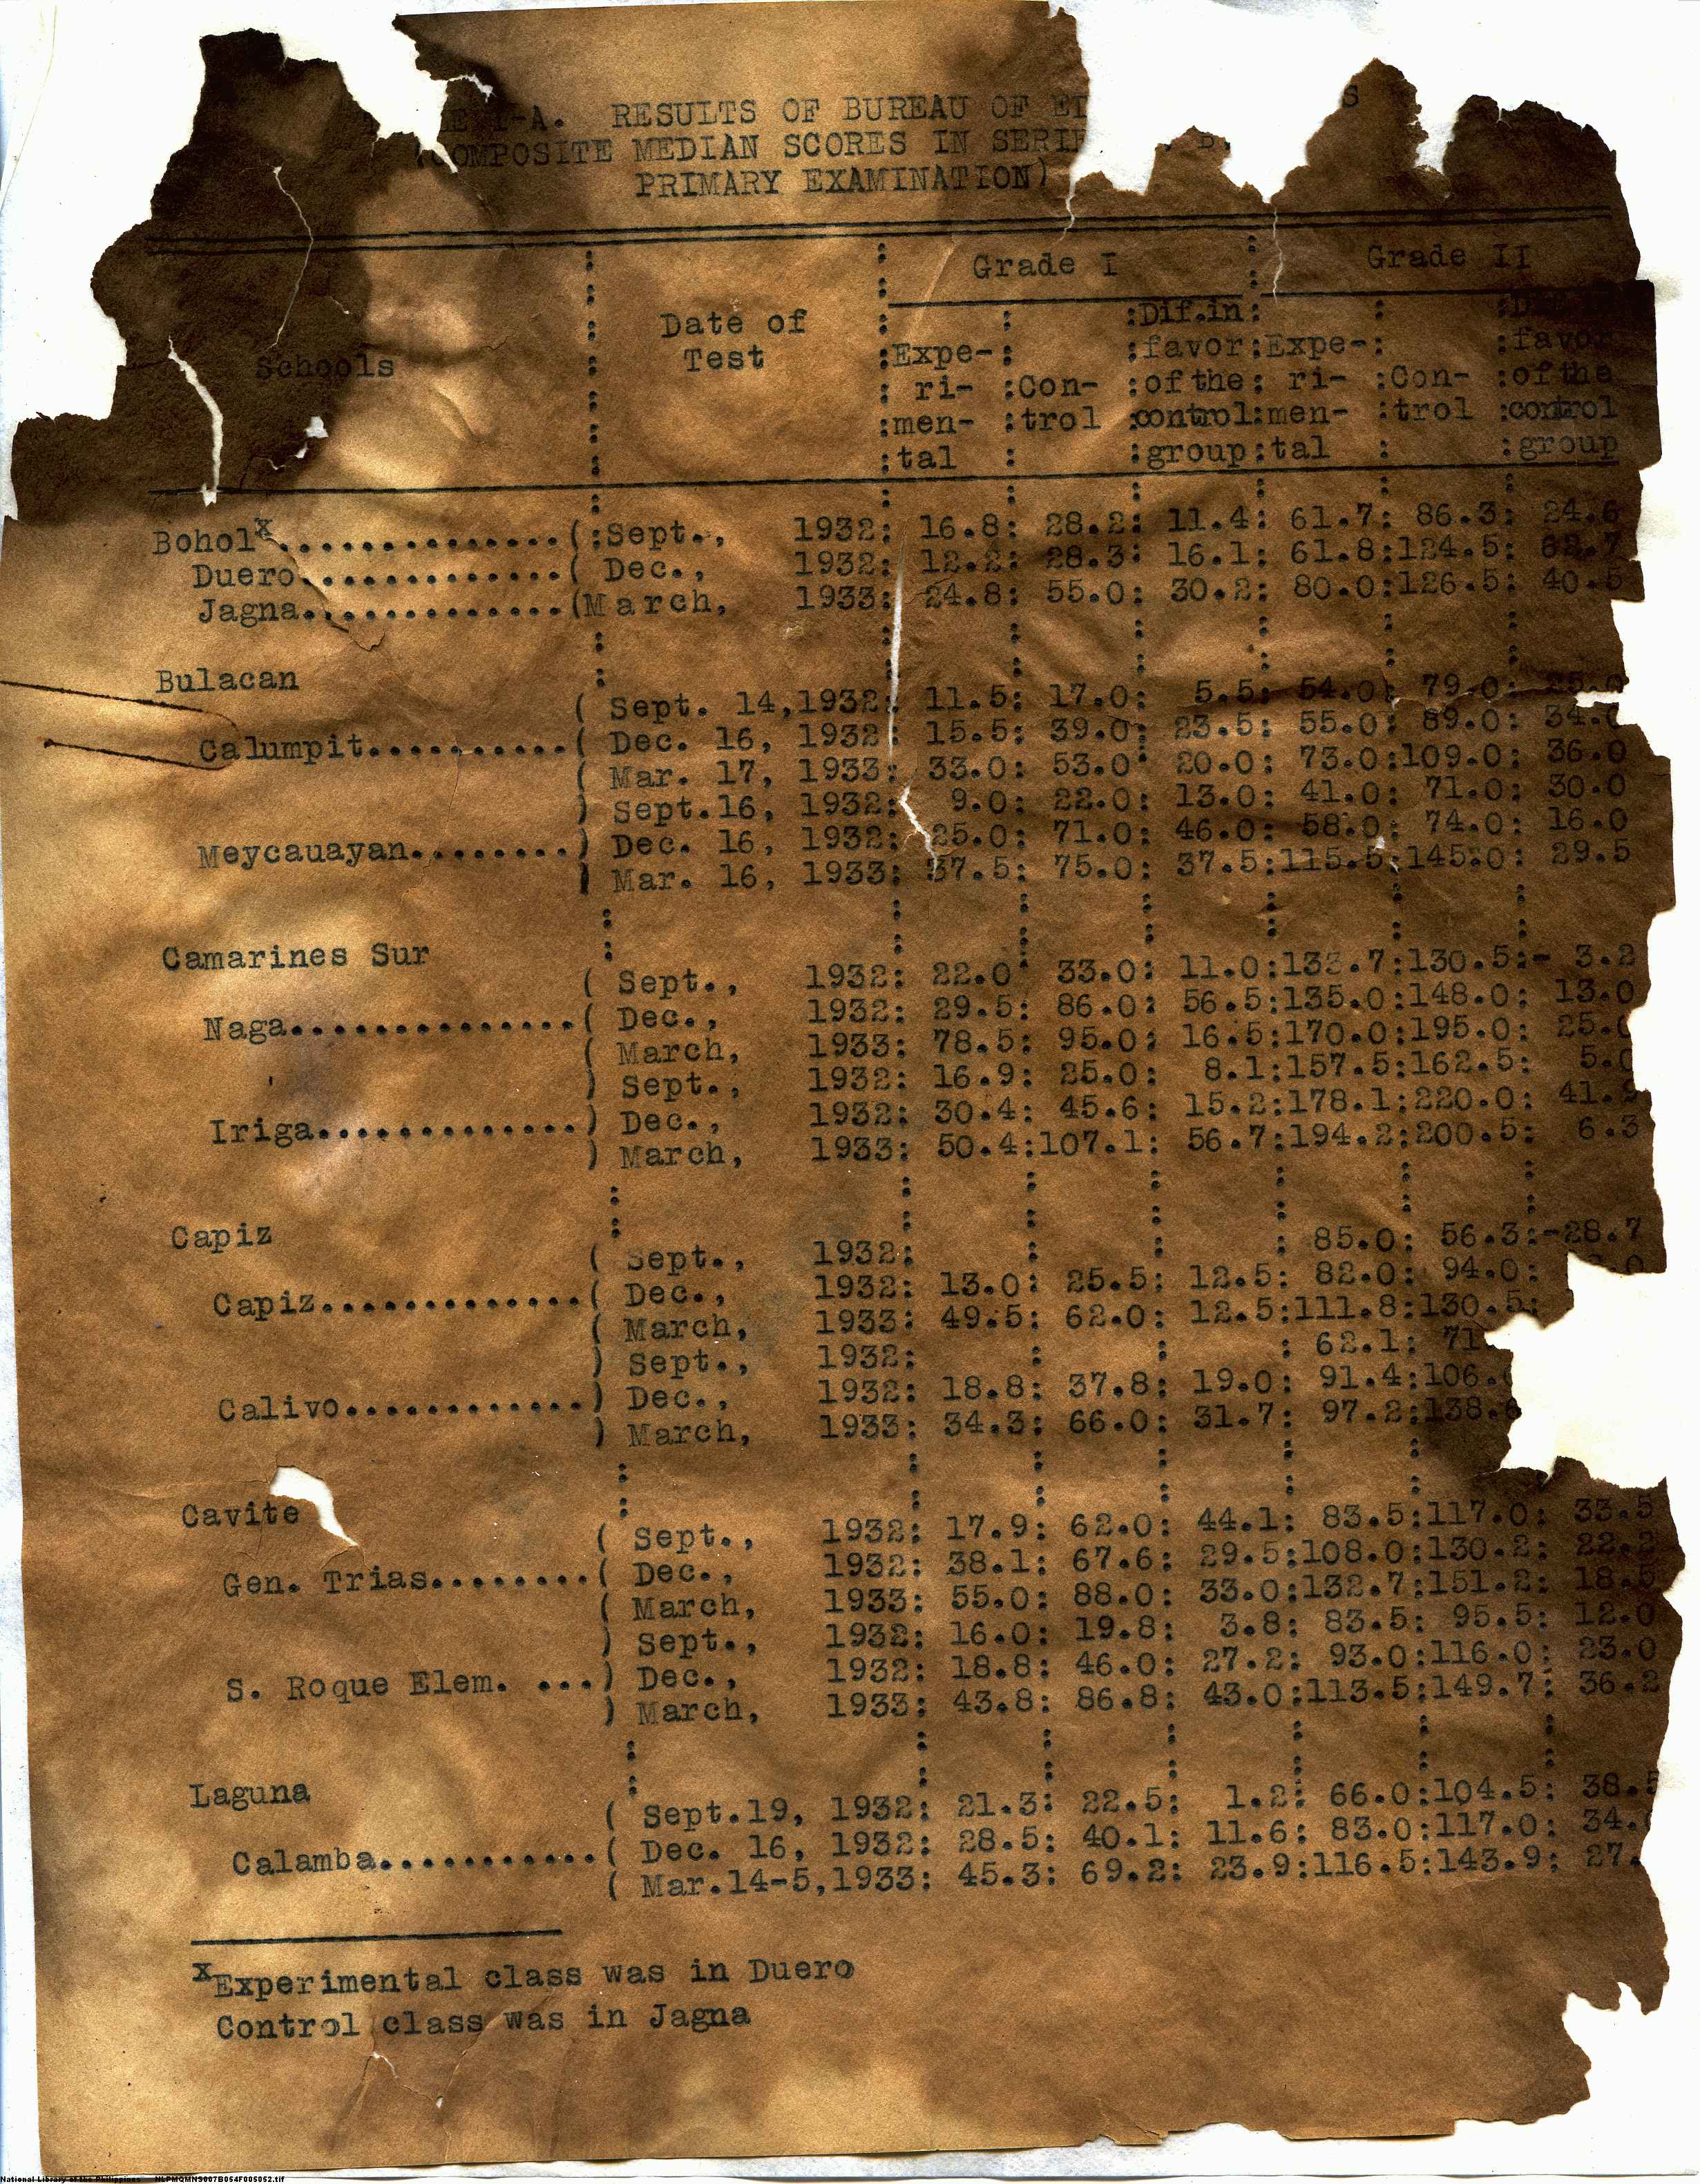 I-A. RESULTS OF BUREAU OF S
(COMPOSITE MEDIAN SCORES IN B.
PRIMARY EXAMINATION)
Schools : Date of Test : Grade I : Grade II
: Expe-ri-men-tal : Con-trol : Dif.in favor of the control group : Expe-ri-men-tal : Con-trol : favor of the control group
Boholx...............(:Sept., 1932: 16.8: 28.2: 11.4: 61.7: 86.3: 24.6
Duero..............( Dec., 1932: 12.2: 28.3: 16.1: 61.8:124.5: 62.7
Jagna..............(March, 1933: 24.8: 55.0: 30.2: 80.0:126.5: 40.5
Bulacan
( Sept. 14,1932: 11.5: 17.0: 5.5: 54.0: 79.0: 25.0
Calumpit...........( Dec. 16, 1932: 15.5: 39.0: 23.5: 55.0: 89.0: 34.0
( Mar. 17, 1933: 33.0: 53.0: 20.0: 73.0:109.0: 36.0
) Sept.16, 1932: 9.0: 22.0: 13.0: 41.0: 71.0: 30.0
Meycauayan.........) Dec. 16, 1932: 25.0: 71.0: 46.0: 58.0: 74.0: 16.0
) Mar. 16, 1933: 37.5: 75.0: 37.5:115.5:145.0: 29.5
Camarines Sur
( Sept., 1932: 22.0: 33.0: 11.0:133.7:130.5:- 3.2
Naga................( Dec., 1932: 29.5: 86.0: 56.5:135.0:148.0: 13.0
( March, 1933: 78.5: 95.0: 16.5:170.0:195.0: 25.0
) Sept., 1932: 16.9: 25.0: 8.1:157.5:162.5: 5.0
Iriga...............) Dec., 1932: 30.4: 45.6: 15.2:178.1:220.0: 41.9
) March, 1933: 50.4:107.1: 56.7:194.2:200.5: 6.3
Capiz
( Sept., 1932: : : : 85.0: 56.3:-28.7
Capiz...............( Dec., 1932: 13.0: 25.5: 12.5: 82.0: 94.0:
( March, 1933: 49.5: 62.0: 12.5:111.8:130.5:
) Sept., 1932: : : : 62.1: 71
Calivo..............) Dec., 1932: 18.8: 37.8: 19.0: 91.4:106.
) March, 1933: 34.3: 66.0: 31.7: 97.2:138.6
Cavite
( Sept., 1932: 17.9: 62.0: 44.1: 83.5:117.0: 33.5
Gen. Trias.........( Dec., 1932: 38.1: 67.6: 29.5:108.0:130.2: 22.2
( March, 1933: 55.0: 88.0: 33.0:132.7:151.2: 18.5
) Sept., 1932: 16.0: 19.8: 3.8: 83.5: 95.5: 12.0
S. Roque Elem. ...) Dec., 1932: 18.8: 46.0: 27.2: 93.0:116.0: 23.0
) March, 1933: 43.8: 86.8: 43.0:113.5:149.7: 36.2
Laguna
( Sept.19, 1932: 21.3: 22.5: 1.2: 66.0:104.5: 38.5
Calamba............( Dec. 16, 1932: 28.5: 40.1: 11.6: 83.0:117.0: 34.
( Mar.14-5,1933: 45.3: 69.2: 23.9:116.5:143.9: 27.
xExperimental class was in Duero
Control class was in Jagna
National Library of the Philippines NLPMQMN3007B054F005052.tif